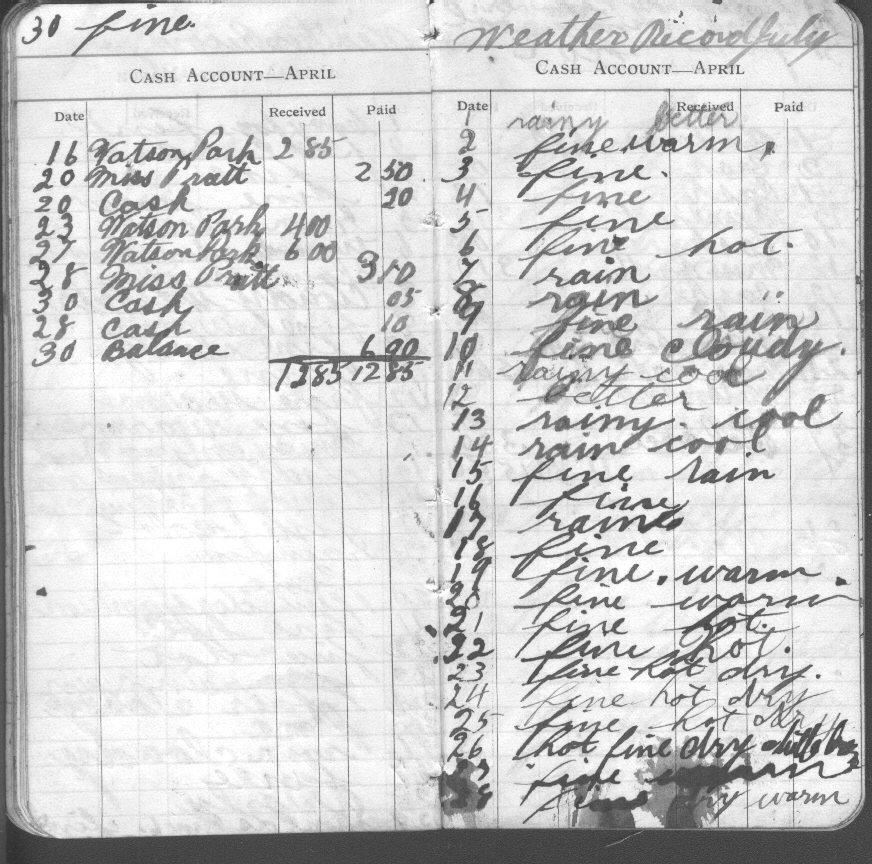 30 fine.
CASH ACCOUNT—APRIL
Date Received Paid
16 Watson Park 2 85
20 Miss Pratt 2 50
20 Cash 20
23 Watson Park 4 00
27 Watson Park 6 00
28 Miss Pratt 3 10
30 Cash 05
28 Cash 10
30 Balance 6 90
12 85 12 85
Weather Record July
CASH ACCOUNT—APRIL
Date Received Paid
1 rainy better
2 fine warm.
3 fine.
4 fine
5 fine
6 fine hot.
7 rain
8 rain
9 fine rain
10 fine cloudy.
11 rainy cool
12 better
13 rainy. cool
14 rain cool
15 fine rain
16 fine
17 rain
18 fine
19 fine. warm.
20 fine warm
21 fine hot.
22 fine hot.
23 fine hot dry.
24 fine hot dry
25 fine hot dry
26 hot fine dry
27 fine warm
28 fine dry warm